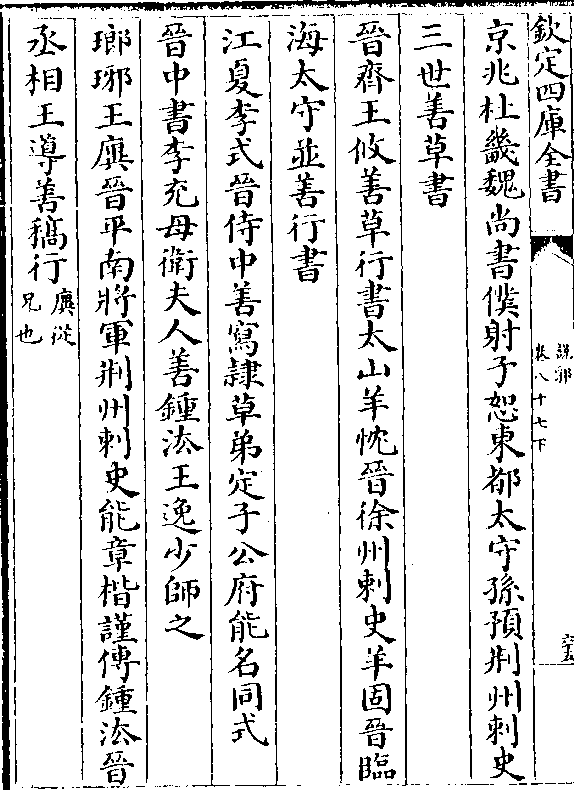 欽定四庫全書
說郛
卷八十七下
京兆杜畿魏尚書僕射子恕東都太守孫預荆州刺史
三世善草書
晉齊王攸善草行書太山羊忱晉徐州刺史羊固晉臨
海太守並善行書
江夏李式晉侍中善寫隸草弟定子公府能名同式
晉中書李充母衛夫人善鍾法王逸少師之
瑯琊王廙晉平南將軍荆州刺史能章楷謹傳鍾法晉
丞相王導善稿行廙從
兄也